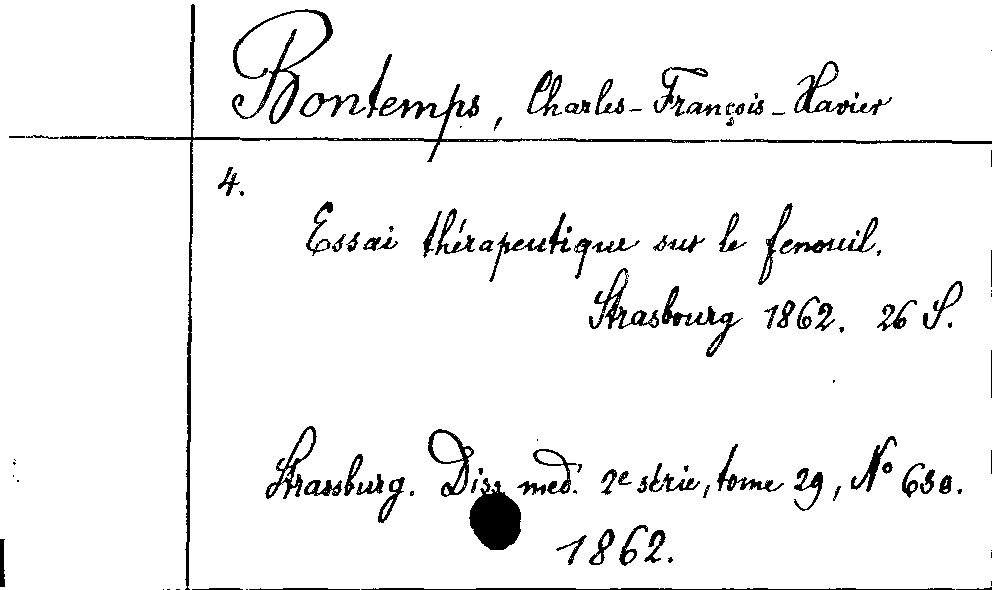 Bontemps, Charles-François-Xavier
4.
Essai thérapeutique sur le fenouil.
Strasbourg 1862. 26 S.
Strassburg. Diss. med. 2e série, tome 29, No 630.
1862.